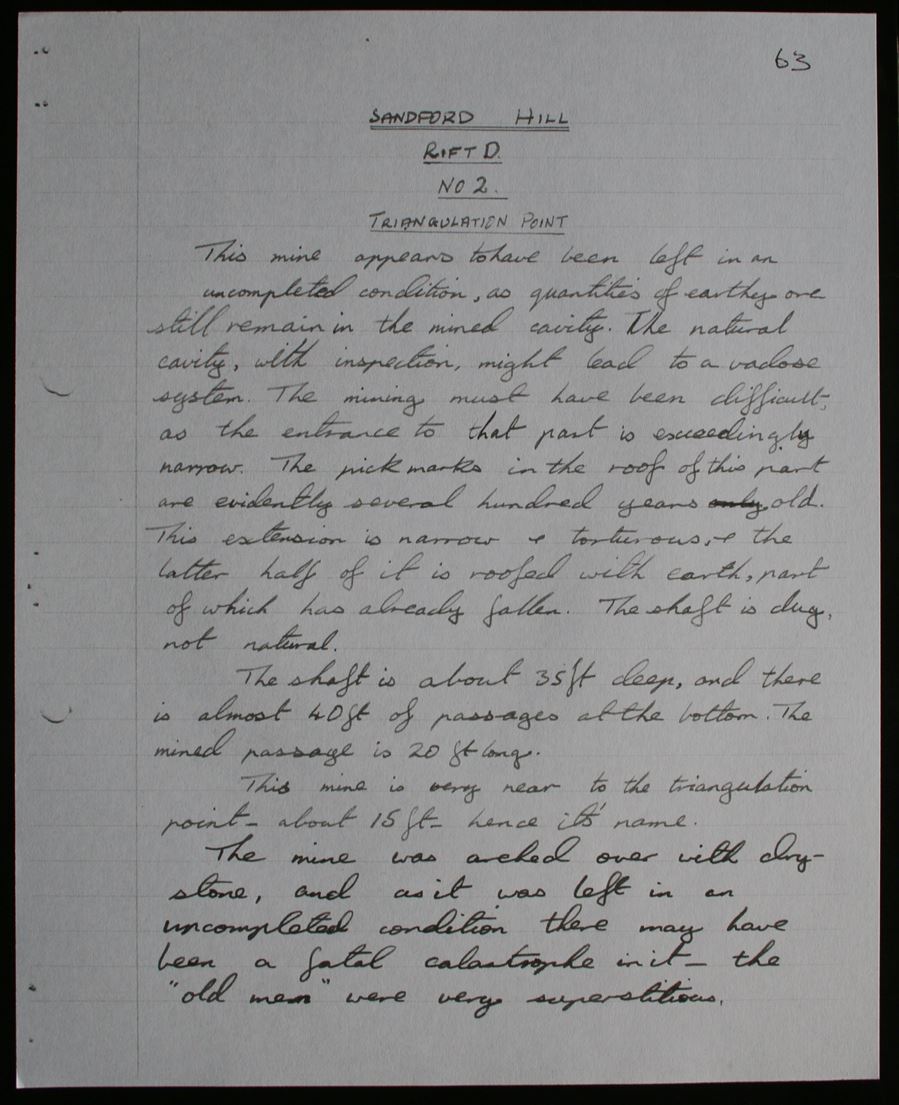 63
SANDFORD HILL
RIFT D.
NO 2.
TRIANGULATION POINT
This mine appears to have been left in an
uncompleted condition, as quantities of earthy ore
still remain in the mined cavity. The natural
cavity, with inspection, might lead to a vadose
system. The mining must have been difficult,
as the entrance to that part is exceedingly
narrow. The pick marks in the roof of this part
are evidently several hundred years only old.
This extension is narrow & torturous, & the
latter half of it is roofed with earth, part
of which has already fallen. The shaft is dug,
not natural.
The shaft is about 35ft deep, and there
is almost 40ft of passages at the bottom. The
mined passage is 20 ft long.
This mine is very near to the triangulation
point – about 15ft – hence it's name.
The mine was arched over with dry-
stone, and as it was left in an
uncompleted condition there may have
been a fatal catastrophe in it – the
"old men" were very superstitious.